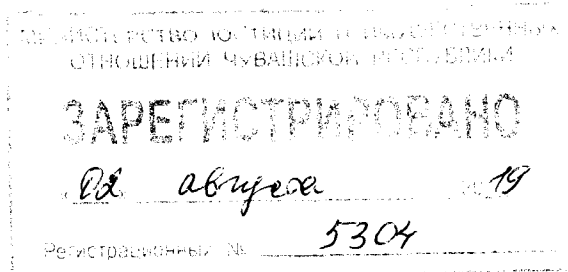 МИНИСТЕРСТВО ЮСТИЦИИ И ИМУЩЕСТВЕННЫХ
ОТНОШЕНИЙ ЧУВАШСКОЙ РЕСПУБЛИКИ
ЗАРЕГИСТРИРОВАНО
02 августа 2019
Регистрационный № 5304